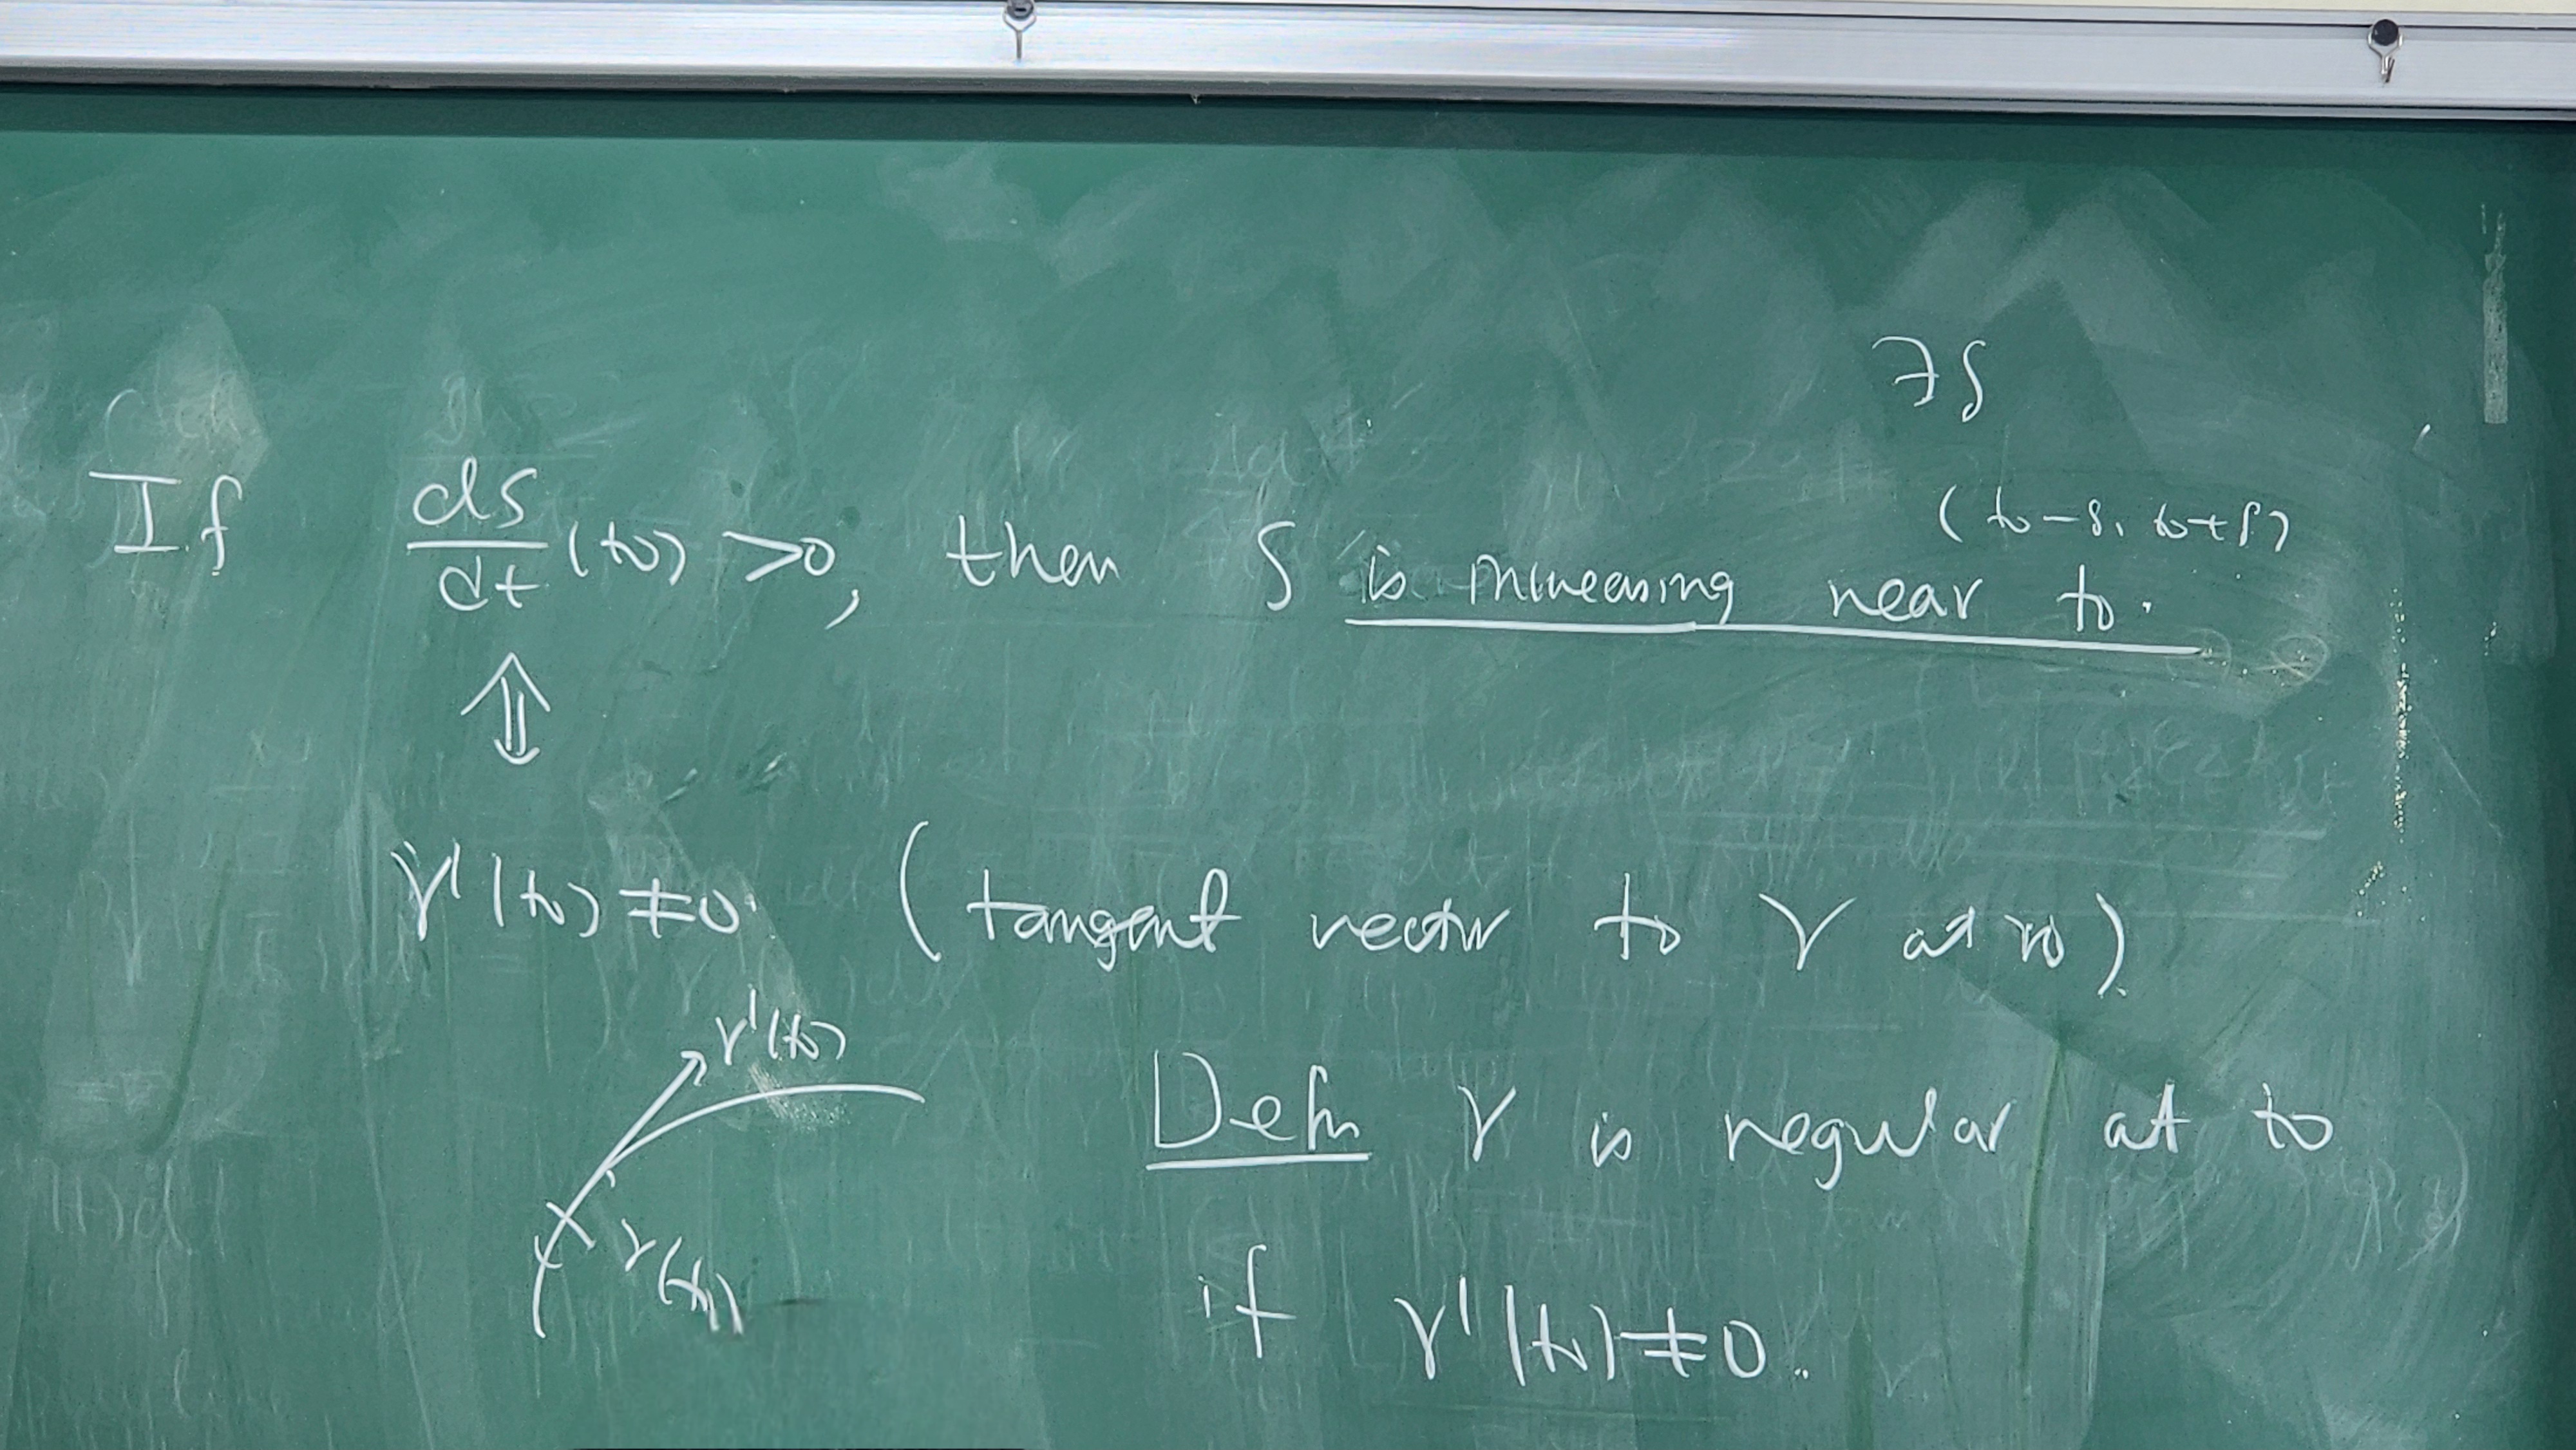 ∃δ
(t₀-δ, t₀+δ)
If ds/dt (t₀) >0, then S is increasing near t₀.
⇕
γ'(t₀) ≠0. (tangent vector to γ at t₀)
γ'(t₀)
γ(t₀)
Defn γ is regular at t₀
if γ'(t₀) ≠0.